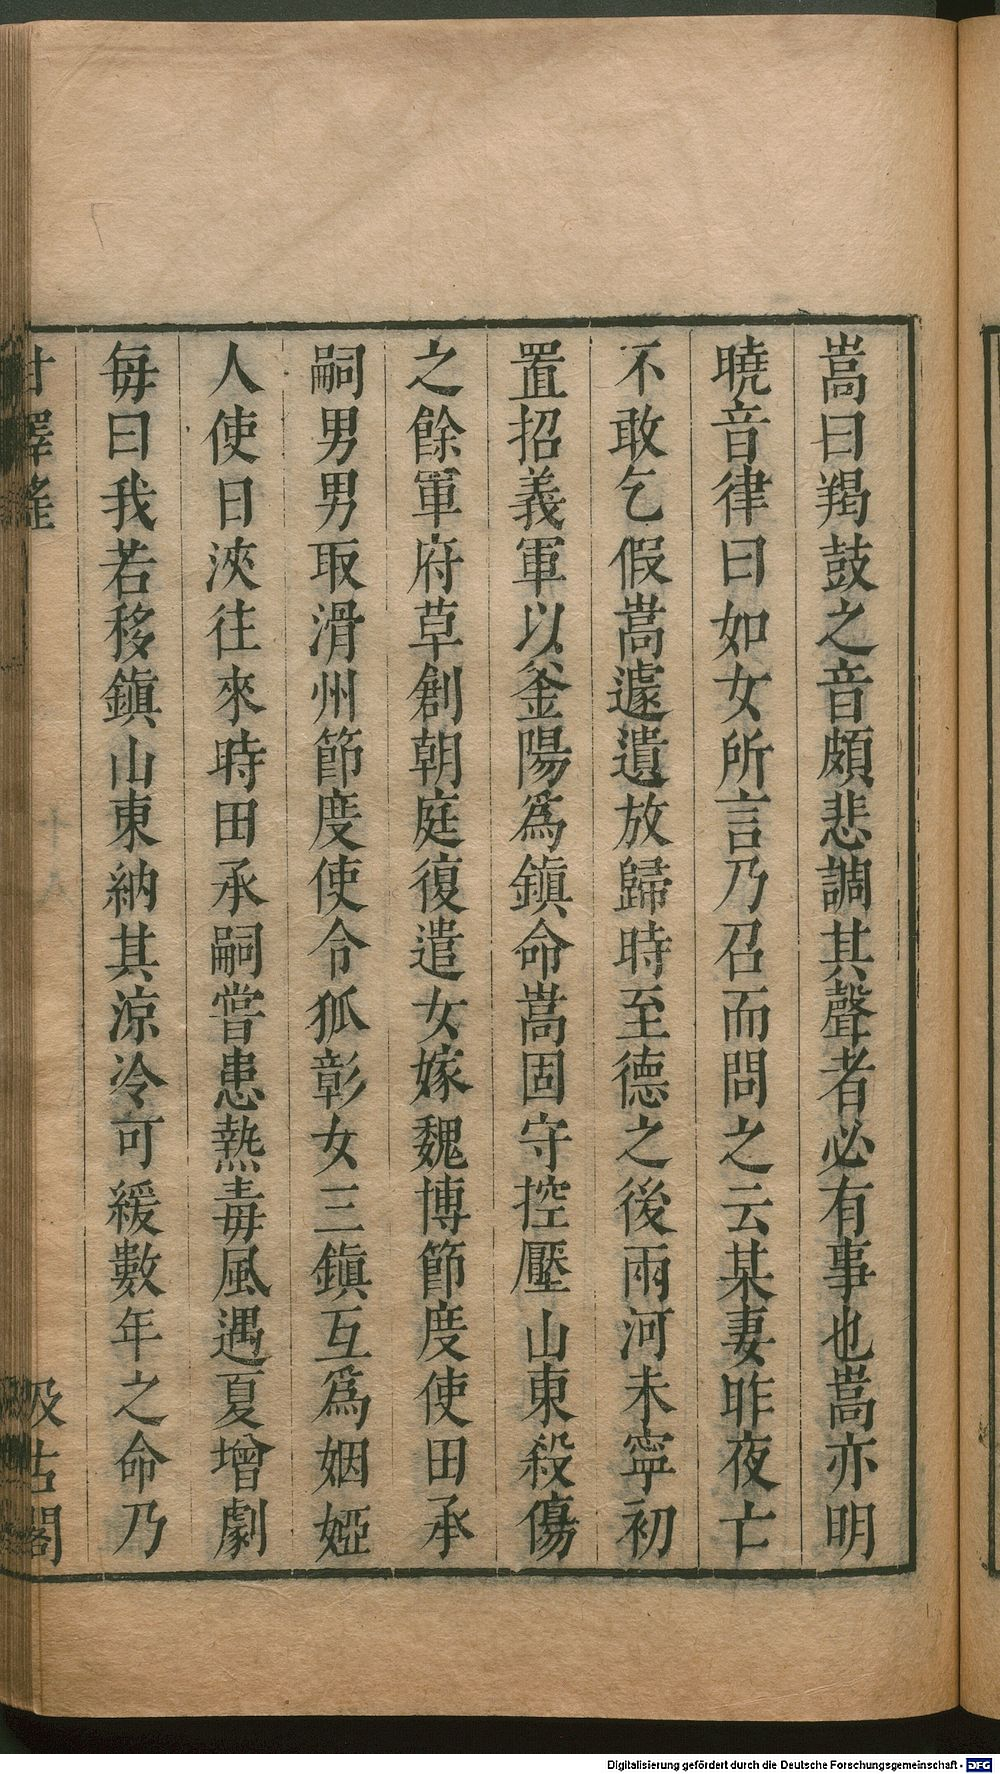 嵩曰羯鼓之音頗悲調其聲者必有事也嵩亦明
曉音律曰如女所言乃召而問之云某妻昨夜亡
不敢乞假嵩遽遣放歸時至德之後兩河未寧初
置招義軍以釜陽爲鎮命嵩固守控壓山東殺傷
之餘軍府草創朝庭復遣女嫁魏博節度使田承
嗣男男取滑州節度使令狐彰女三鎮互爲姻婭
人使日浹往來時田承嗣嘗患熱毒風遇夏增劇
每曰我若移鎮山東納其涼冷可緩數年之命乃
甘澤謠
汲古閣
Digitalisierung gefördert durch die Deutsche Forschungsgemeinschaft - DFG